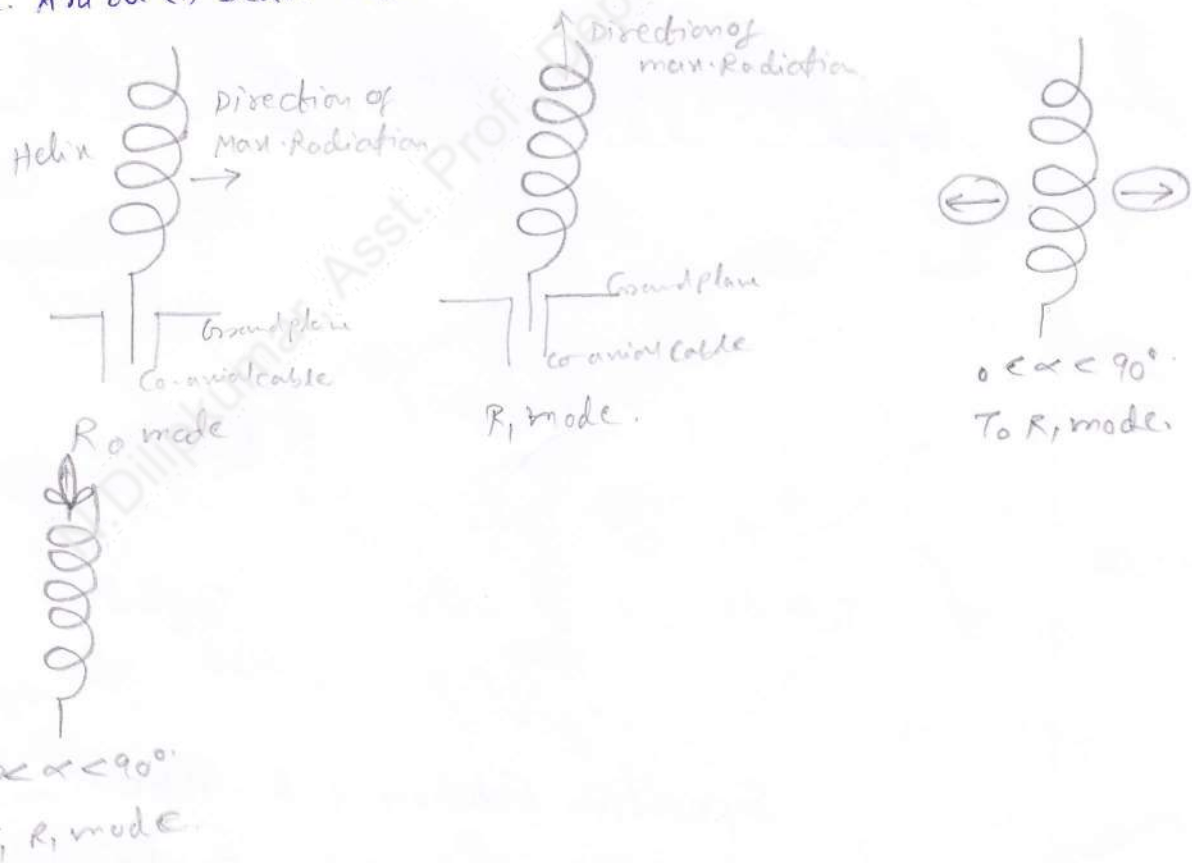 Direction of
Max. Radiation
Helix
Ground plane
Co-axial cable
R₀ mode
Direction of
max. Radiation
Ground plane
co-axial cable
R₁ mode.
0 < α < 90°.
T₀ R₁ mode.
< α < 90°.
R₁ mode.
Dilipkumar, Asst. Prof.